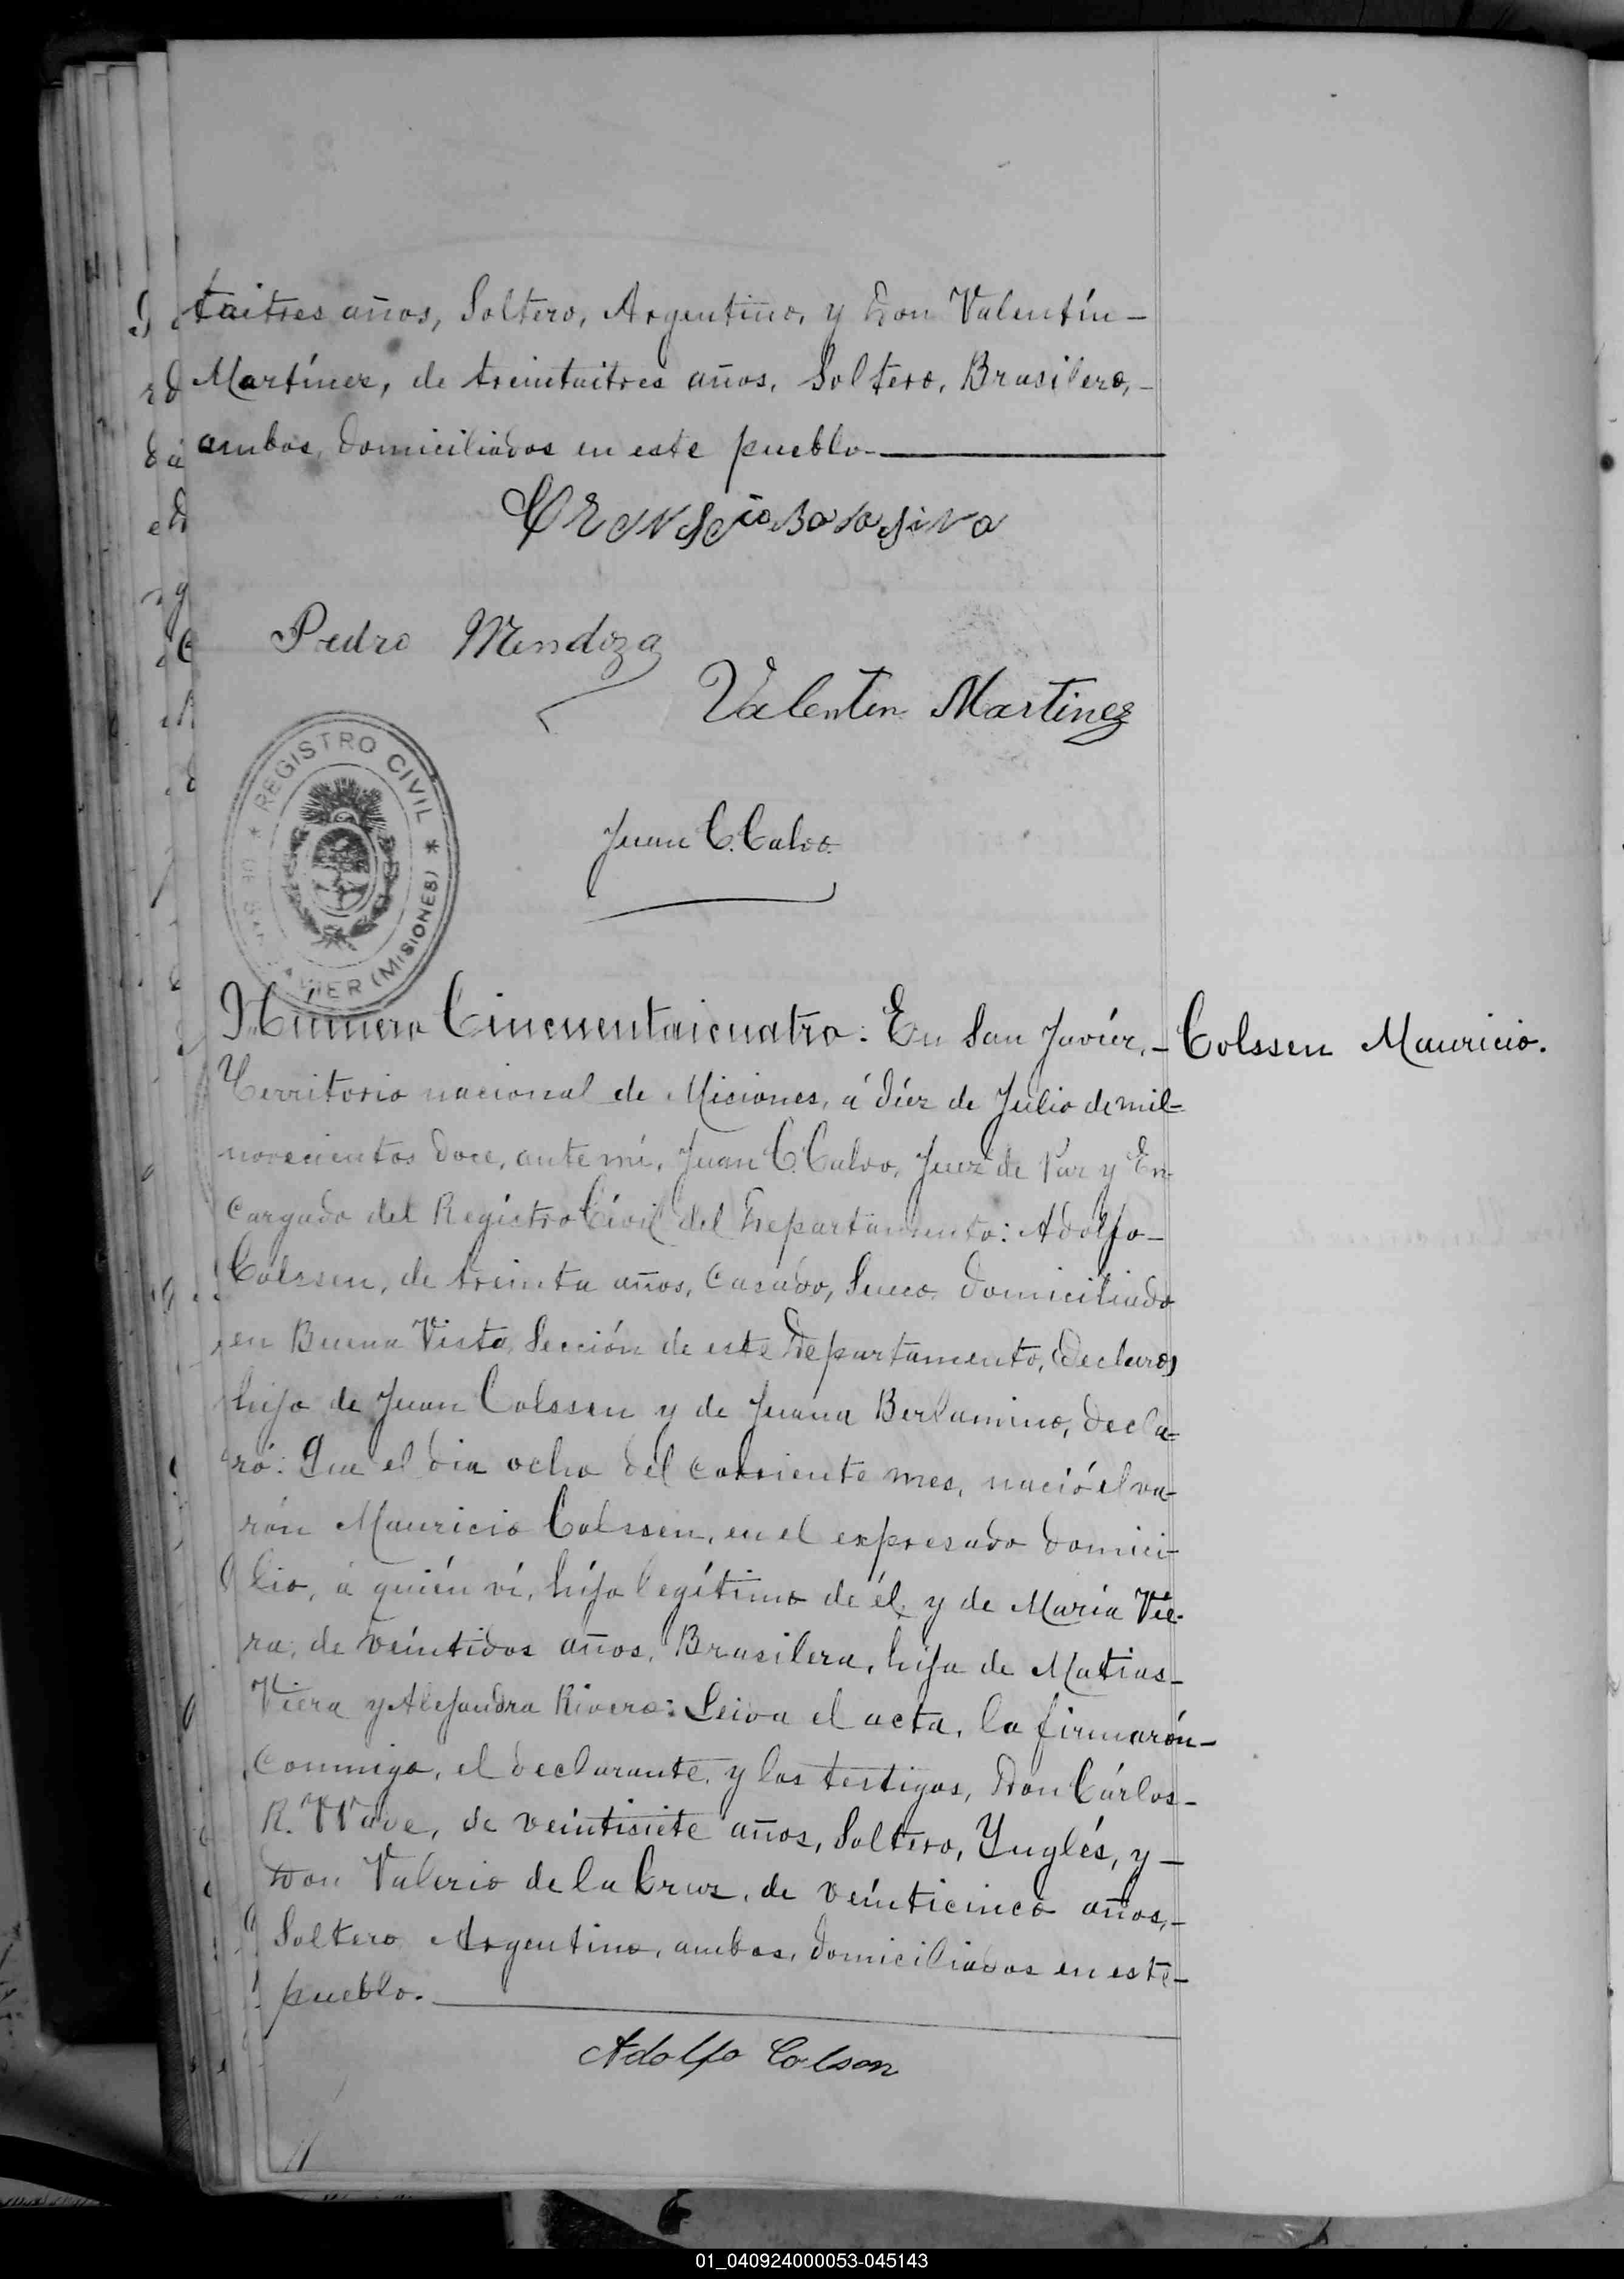 taitres años, Soltero, Argentino, y Don Valentín-
Martínez, de treintaitres años, Soltero, Brasilero,-
ambos, domiciliados en este pueblo.-
Pedro Mendoza
Valentin Martinez
REGISTRO CIVIL
(MISIONES)
Juan C. Calvo.
Número Cincuentaicuatro: En San Javiér,-
Colssen Mauricio.
Territorio nacional de Misiones, á díez de Julio de mil-
novecientos doce, ante mí, Juan C. Calvo, Juez de Paz y En-
cargado del Registro Civil del Departamento: Adolfo-
Colssen, de treinta años, Casado, Sueco, domiciliado
en Buena Vista, Sección de este Departamento, (declaro)
hijo de Juan Colssen y de Juana Berlamino, decla-
ró: Que el dia ocho del corriente mes, nació el va-
rón Mauricio Colssen, en el expresado domici-
lio, á quién ví, hijo legítimo de él, y de María Vie-
ra, de veintidos años, Brasilera, hija de Matias-
Viera y Alejandra Rivero: Leiva el acta, la firmarón-
conmigo, el declarante, y los testigos, Don Cárlos-
R. Wade, de veintisiete años, Soltero, Ynglés, y-
Don Valerio de la Cruz, de veinticinco años,-
Soltero Argentino, ambos, domiciliados en este-
pueblo.
Adolfo Colson
01_040924000053-045143